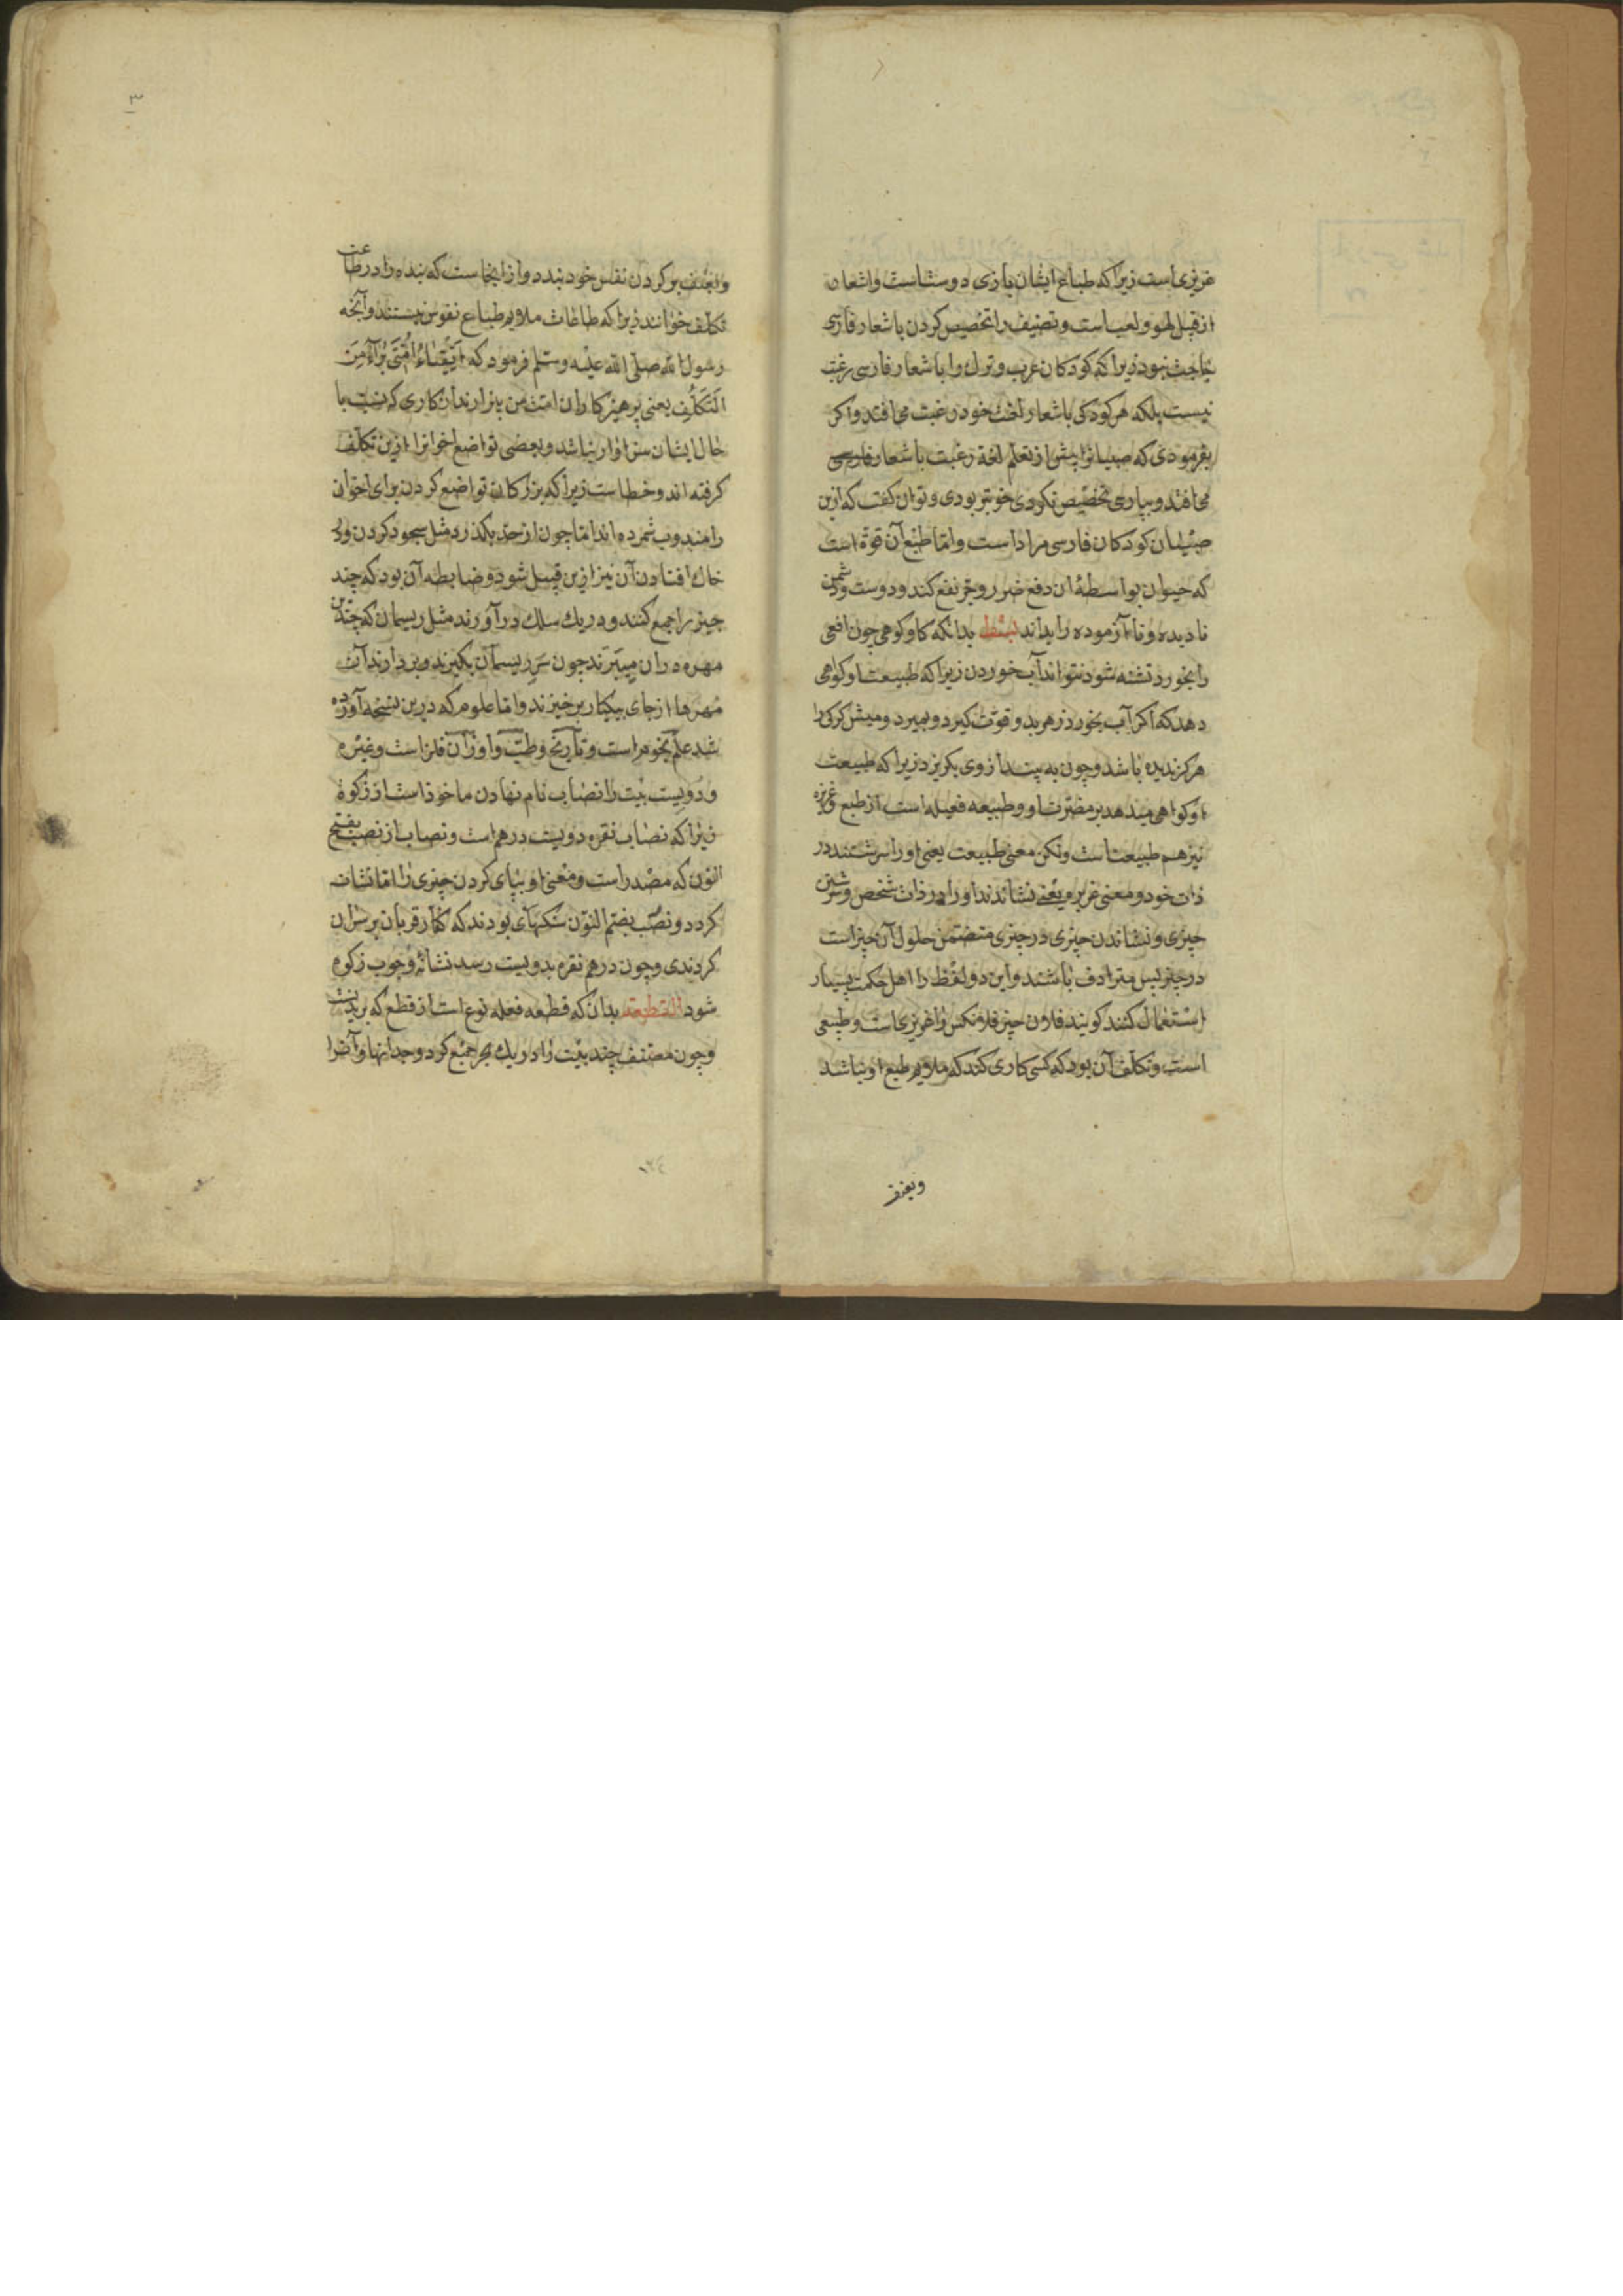 غریزی است زیرا که طباع ایشان بازی دوست است و اشعار
از قبیل لهو و لعب است و تصنیف را تخصیص کردن باشعار فارسی
حاجت نبود زیرا که کودکان عرب و ترک را باشعار فارسی رغبت
نیست بلکه هر کودکی باشعار لغت خود رغبت می افتد و اکر
بفرمودی که صبیانرا پیش از تعلم لغة رغبت باشعار فارسی
می افتد و بپارسی تخصیص نکردی خوبتر بودی و توان کفت که ازین
صبیان کودکان فارسی مراد است و اما طبع آن قوة است
که حیوان بواسطهٔ آن دفع ضرر و جر نفع کند و دوست و دشمن
نادیده و نا آزموده را بداند بدانکه کاو کوهی چون افعی
را بخورد تشنه شود نتواند آب خوردن زیرا که طبیعت او کواهی
دهد که اکر آب بخورد زهر بدو قوت کیرد و بمیرد و میش کرک را
هرکز ندیده باشد و چون به بیند از وی بکریزد زیرا که طبیعت
او کواهی میدهد بر مضرت او و طبیعه فعیله است از طبع و غریزه
نیز هم طبیعت است ولکن معنی طبیعت یعنی او را سرشتند در
ذات خود و معنی غریزه یعنی نشاندند او را در ذات شخص و سرشتن
چیزی و نشاندن چیزی در چیزی متضمن حلول آن چیز است
در چیز پس مترادف باشند و این دو لفظ را اهل حکمت بسیار
استعمال کنند کویند فلان چیز فلانکس را غریزی است و طبیعی
است و تکلف آن بود که کسی کاری کند که ملایم طبع او نباشد
٣
بر کردن نفس خود بندد و از اینجاست که بنده را در طاعت
تکلف خوانند زیرا که طاعات ملایم طباع نفوس نیستند و آنچه
رسول الله صلی الله علیه وسلم فرمود که اَتْقِیَاءُ اُمَّتی بُرَآءُ مِنَ
التَّکَلُّفِ یعنی پرهیزکاران امت من بیزارند از کاری که نسبت با
حال ایشان سزاوار نباشد و بعضی تواضع اخوانرا ازین تکلف
کرفته اند و خطا است زیرا که بزرکان تواضع کردن برای اخوان
را مندوب شمرده اند اما چون از حد بکذرد مثل سجود کردن و بر
خاک افتادن آن نیز ازین قبیل شود و ضابطه آن بود که چند
چیز را جمع کنند و در یک سلک در آورند مثل ریسمان که چندین
مهره در آن میبرند چون سَرِ ریسمان بکیرند و بردارند آن
مهرها از جای بیکبار برخیزند و اما علوم که درین نسخه آورده
شد علم نجوم است و تأریخ و طبّ و اوزان فلزات و غیره
و دویست بیت را نصاب نام نهادن ماخوذ است از زکوة
زیرا که نصاب نقره دویست درهم است و نصاب از نصب بفتح
النون که مصدر است و معنی او بپای کردن چیزی را اما نشانه
کردد و نصُب بضم النون سنکهای بودند که کفار قربان بر سر آن
کردندی و چون درهم نقره بدویست رسد نشانهٔ وجوب زکوة
شود القطعة بدان که قطعه فعله نوع است از قطع که بریدنست
و چون مصنف چند بیت را در یک بحر جمع کرد و جدا نهاد آنرا